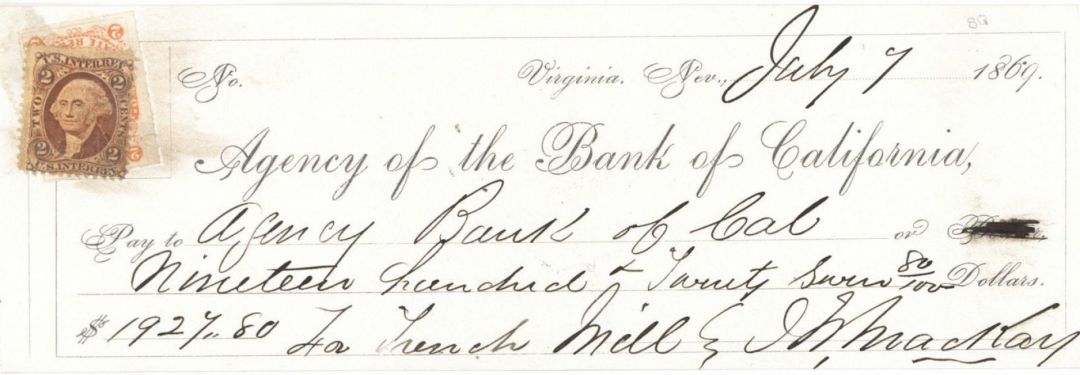 80
U.S. INTER. REV.
2 2
TWO CENTS
2 2
U.S. INTER. REV.
No. Virginia. Nev., July 7 1869.
Agency of the Bank of California,
Pay to Agency Bank of Cal or
Nineteen hundred & Twenty Seven 80/100 Dollars.
$ 1927.80 For French Mill J W Mackay